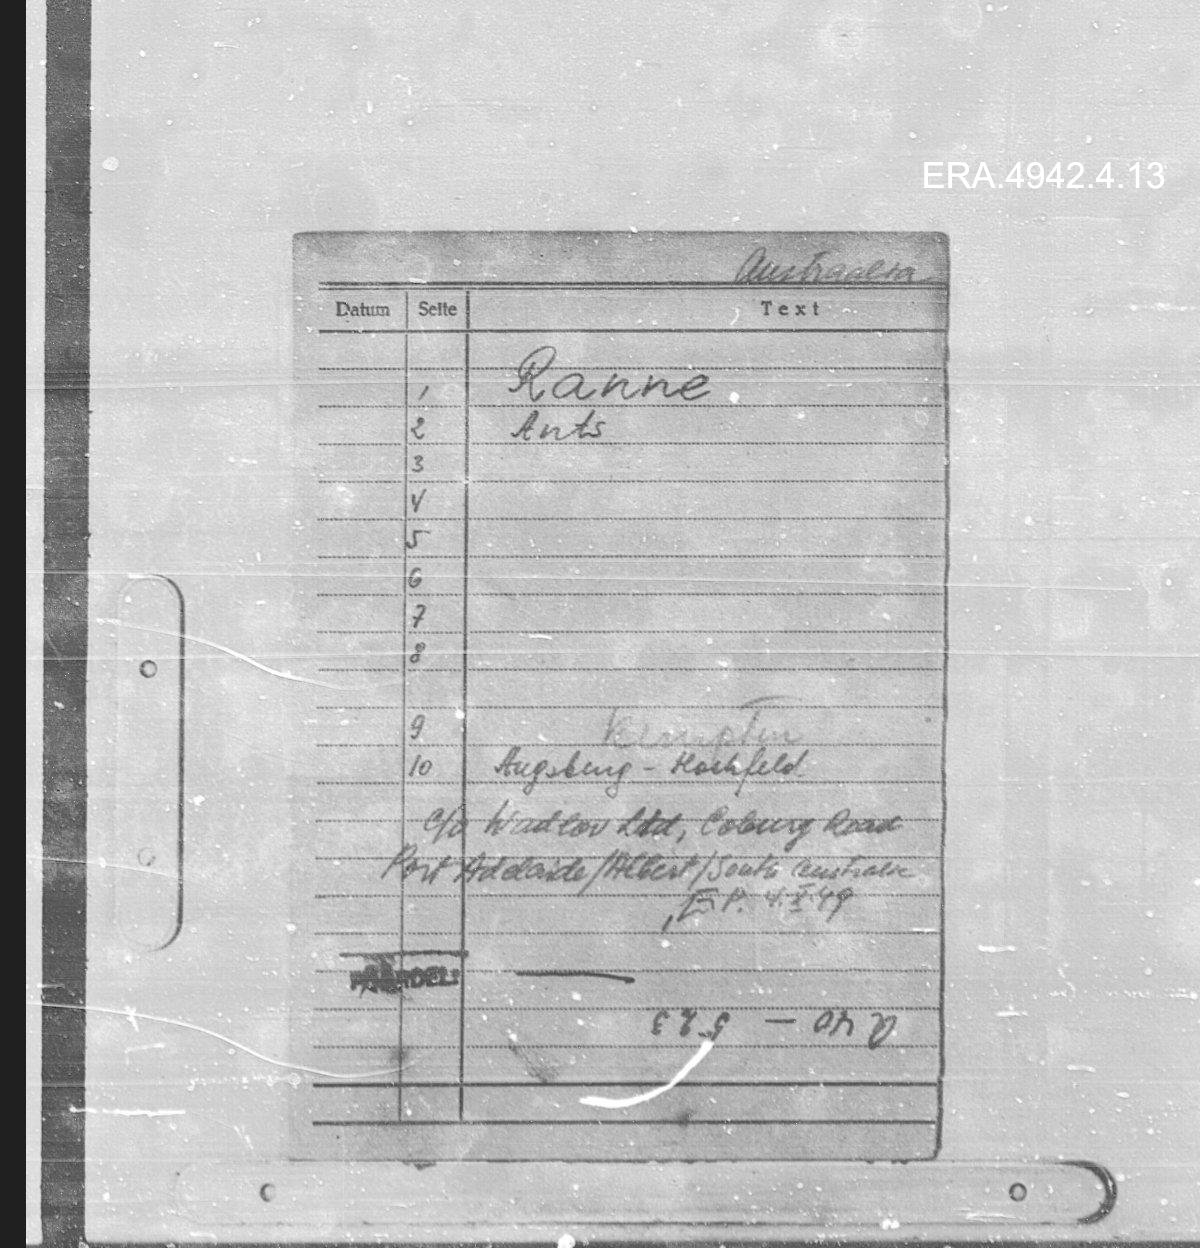 ERA.4942.4.13
Austraalia
Datum Seite Text
1 Ranne
2 Ants
3
4
5
6
7
8
9 Kempten
10 Augsburg - Hochfeld
c/o Wadlov Ltd, Coburg Road
Port Adelaide/Albert/South Australia
E.P. 4.X.49
A 40 — 523